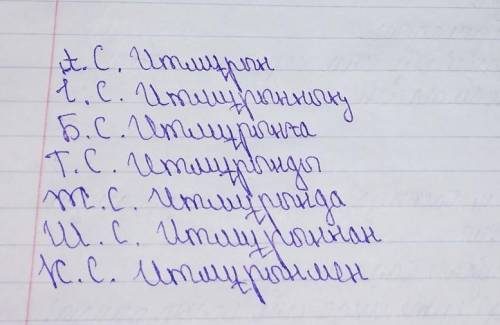 А.С. Итмұрын
І.С. Итмұрынның
Б.С. Итмұрынға
Т.С. Итмұрынды
Ж.С. Итмұрында
Ш.С. Итмұрыннан
К.С. Итмұрынмен